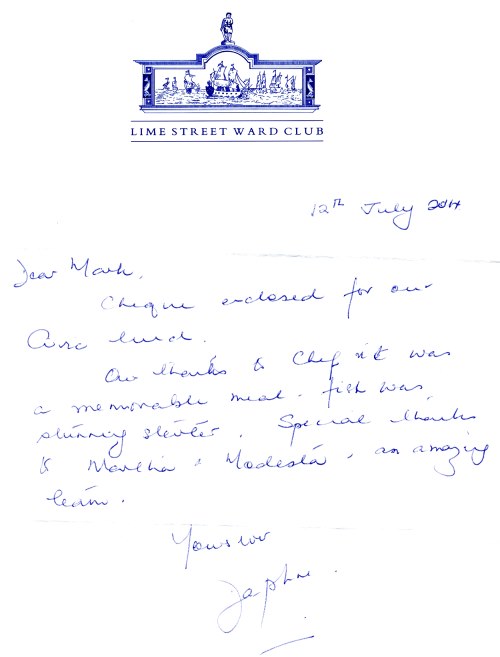 LIME STREET WARD CLUB
12TH July 2014
Dear Mark,
Cheque enclosed for our
lunch.
Our thanks to Chef it was
a memorable meal. fish was
stunning starter. Special thanks
to Martha & Modesta, an amazing
team.
Yours
Daphne.